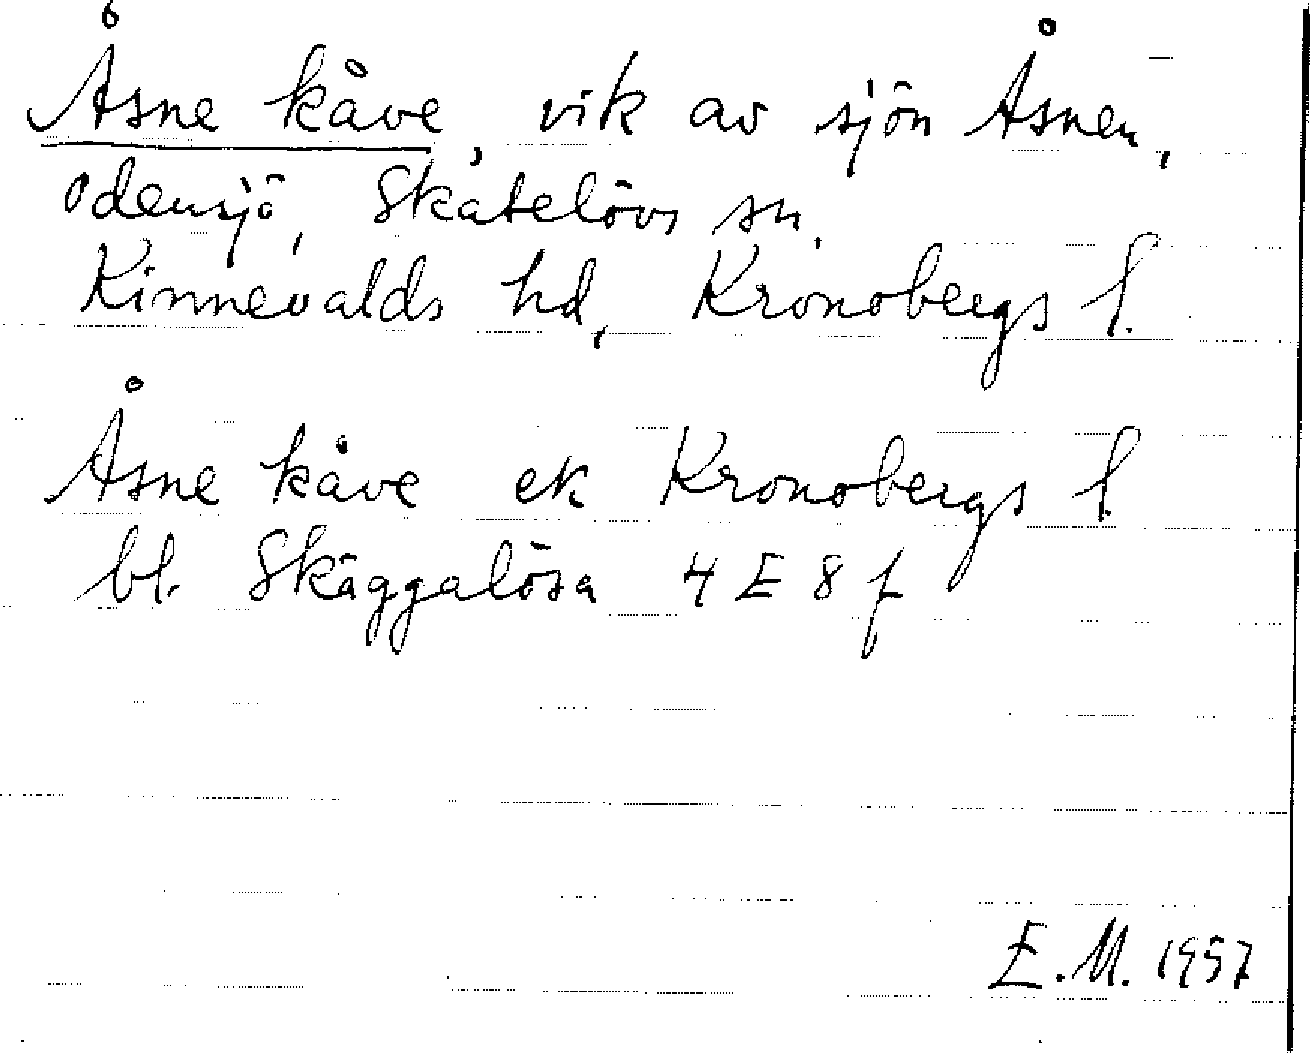 Åsne kåve, vik av sjön Åsnen,
Odensjö, Skatelövs sn,
Kinnevalds hd, Kronobergs l.
Åsne kåve ek Kronobergs l.
bl. Skäggalösa 4 E 8 f
E.M. 1957